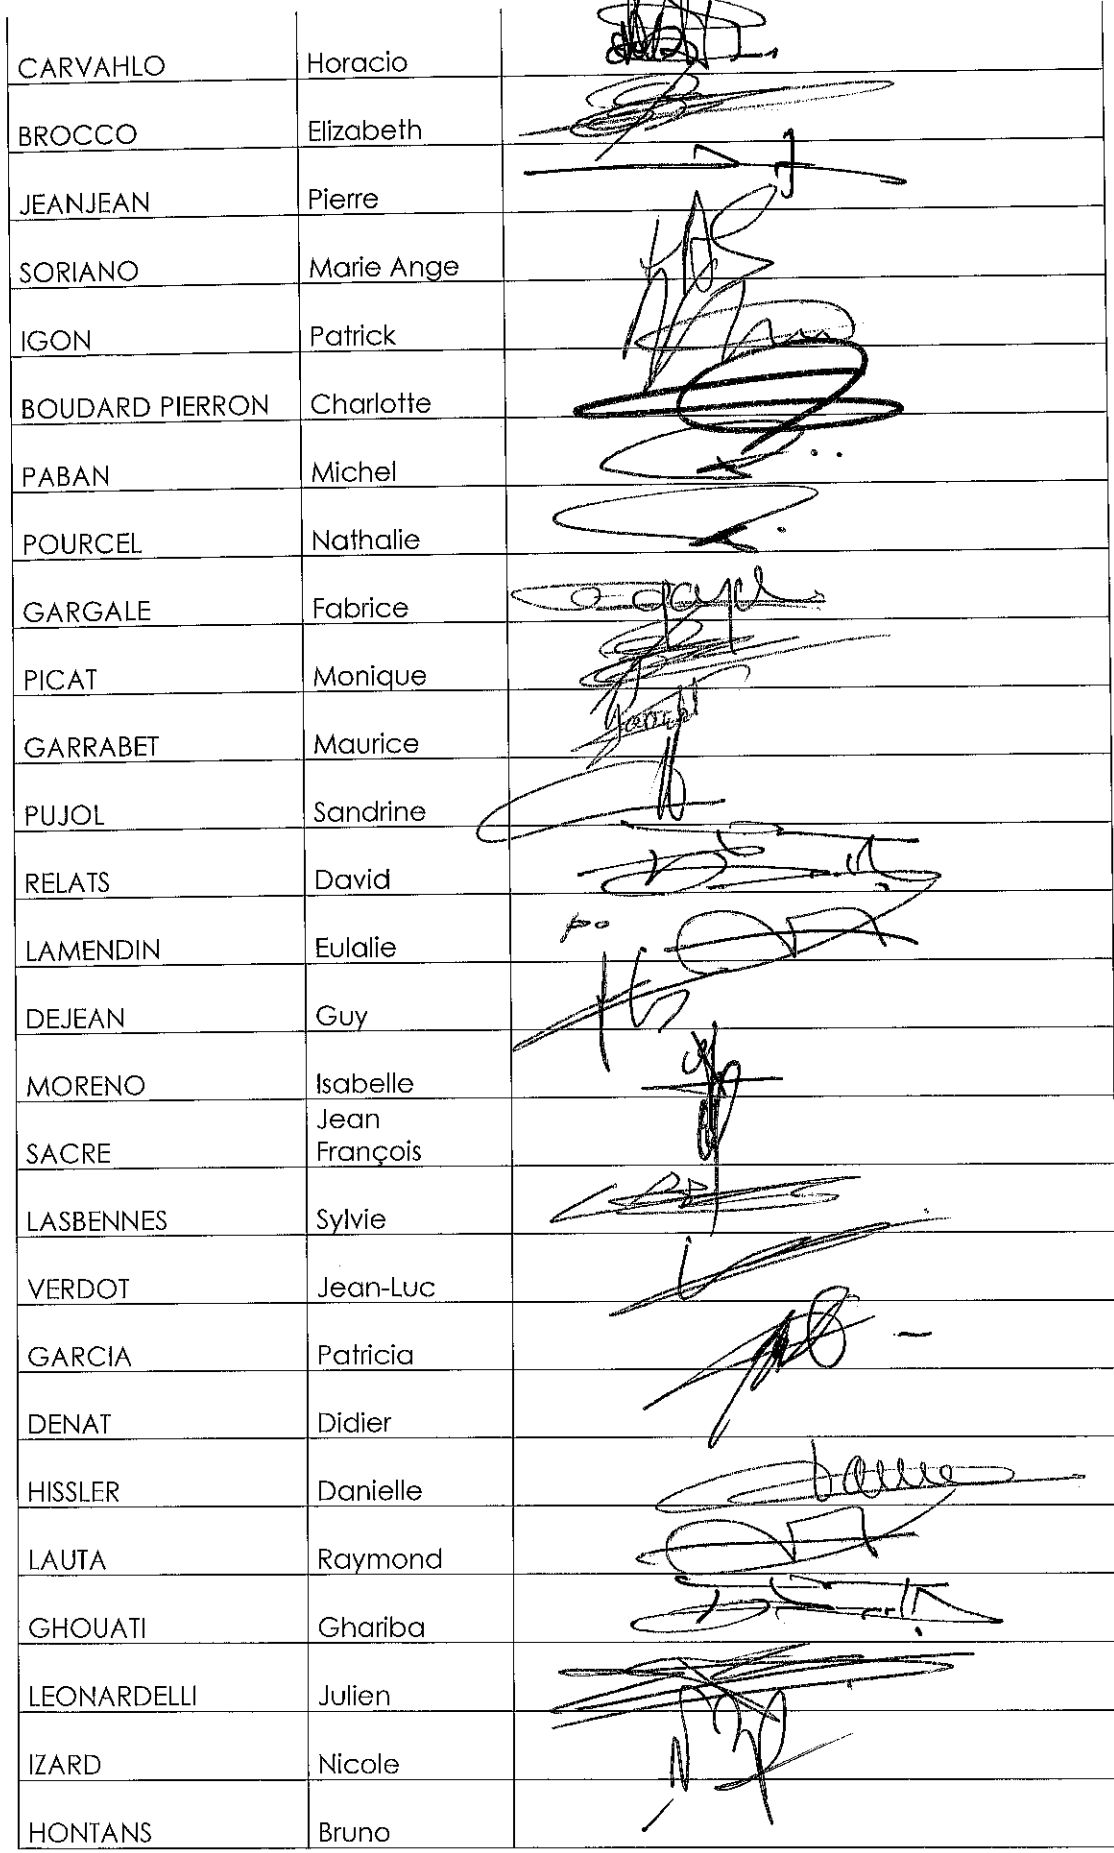 CARVAHLO Horacio
BROCCO Elizabeth
JEANJEAN Pierre
SORIANO Marie Ange
IGON Patrick
BOUDARD PIERRON Charlotte
PABAN Michel
POURCEL Nathalie
GARGALE Fabrice
PICAT Monique
GARRABET Maurice
PUJOL Sandrine
RELATS David
LAMENDIN Eulalie po
DEJEAN Guy
MORENO Isabelle
Jean
SACRE François
LASBENNES Sylvie
VERDOT Jean-Luc
GARCIA Patricia
DENAT Didier
HISSLER Danielle
LAUTA Raymond
GHOUATI Ghariba
LEONARDELLI Julien
IZARD Nicole
HONTANS Bruno